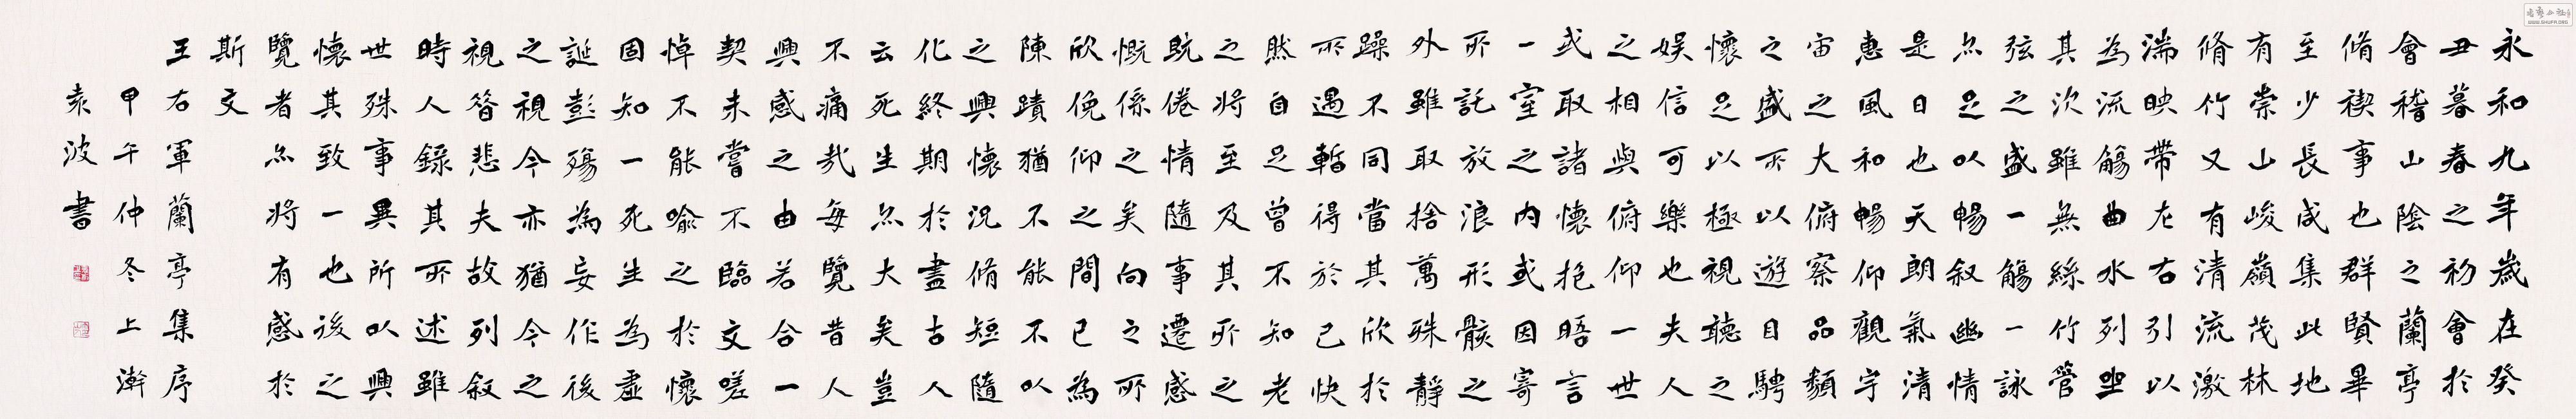 永和九年歲在癸
丑暮春之初會於
會稽山陰之蘭亭
脩禊事也群賢畢
至少長咸集此地
有崇山峻嶺茂林
脩竹又有清流激
湍映帶左右引以
為流觴曲水列坐
其次雖無絲竹管
弦之盛一觴一詠
亦足以暢叙幽情
是日也天朗氣清
惠風和暢仰觀宇
宙之大俯察品類
之盛所以遊目騁
懷足以極視聽之
娛信可樂也夫人
之相與俯仰一世
或取諸懷抱晤言
一室之內或因寄
所託放浪形骸之
外雖取捨萬殊靜
躁不同當其欣於
所遇暫得於己快
然自足曾不知老
之將至及其所之
既倦情隨事遷感
慨係之矣向之所
欣俛仰之間已為
陳蹟猶不能不以
之興懷況脩短隨
化終期於盡古人
云死生亦大矣豈
不痛哉每覽昔人
興感之由若合一
契未嘗不臨文嗟
悼不能喻之於懷
固知一死生為虛
誕彭殤為妄作後
之視今亦猶今之
視昔悲夫故列叙
時人錄其所述雖
世殊事異所以興
懷其致一也後之
覽者亦將有感於
斯文
王右軍蘭亭集序
甲午仲冬上澣
袁波書